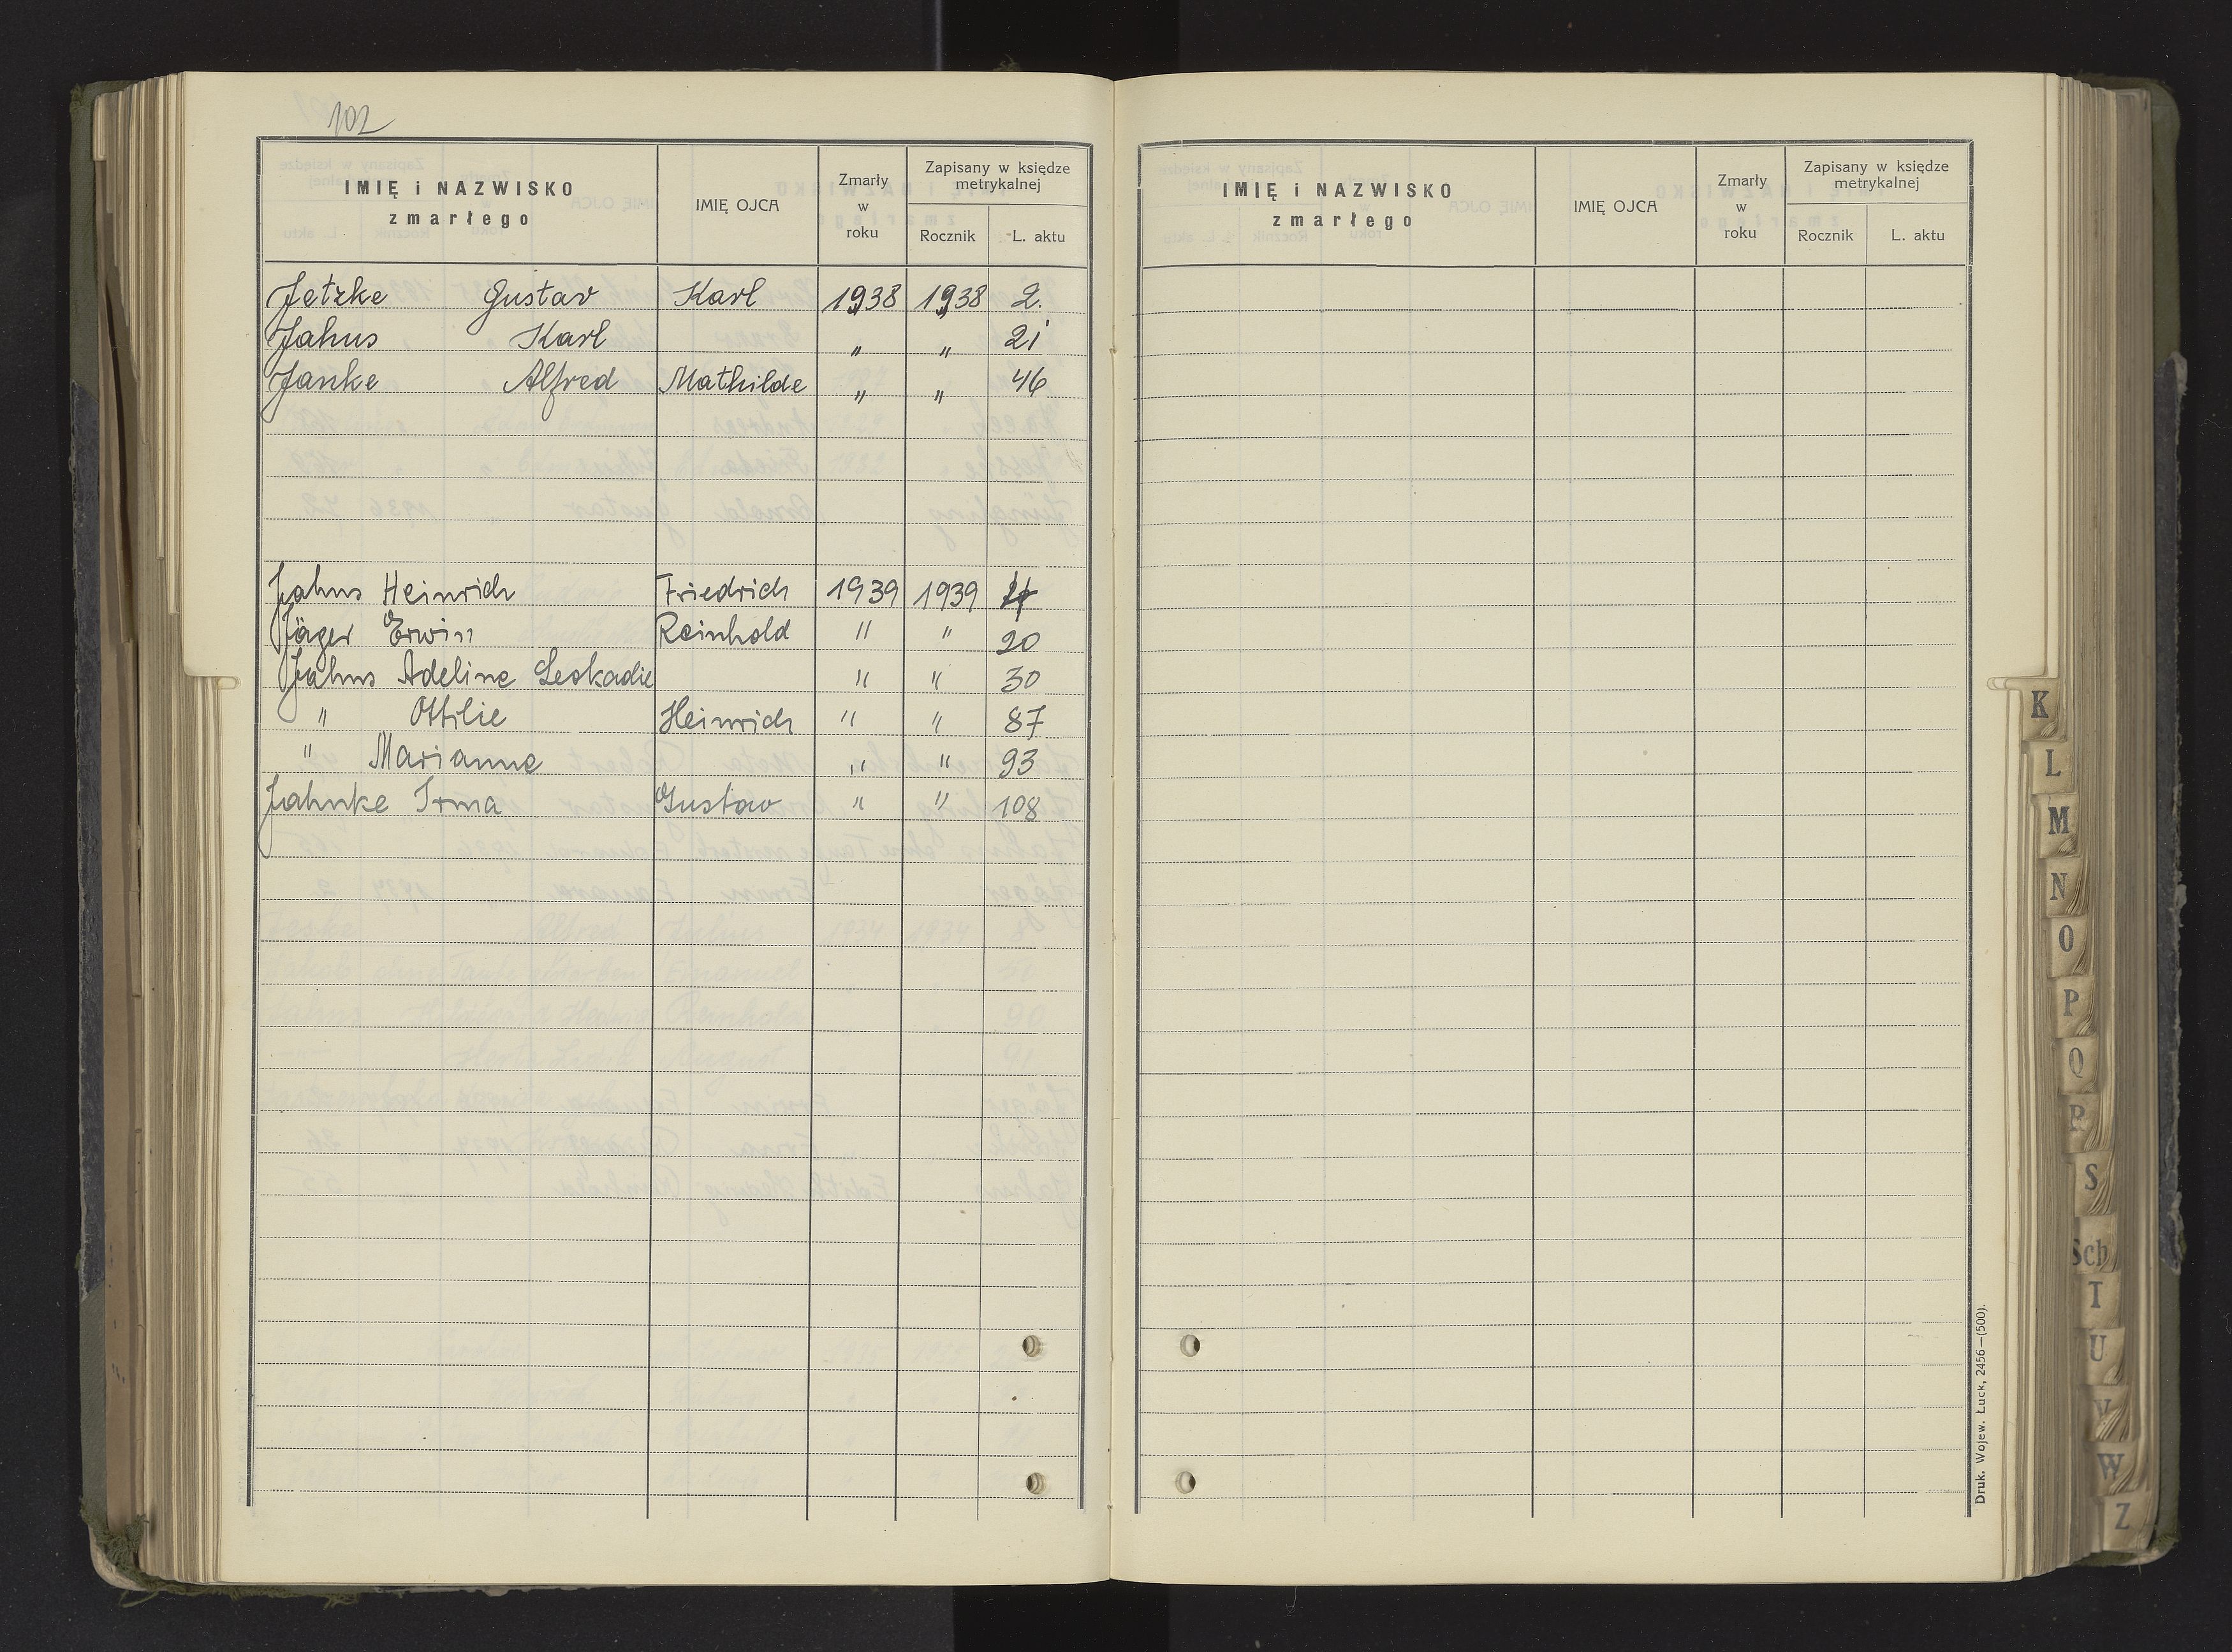 102
IMIĘ i NAZWISKO zmarłego IMIĘ OJCA Zmarły w roku Zapisany w księdze metrykalnej Rocznik L. aktu
Jetzke Gustav Karl 1938 1938 2.
Jahns Karl " " 21
Janke Alfred Mathilde " " 46
Jahns Heinrich Friedrich 1939 1939
Jäger Erwin Reinhold " " 20
Jahns Adeline Leokadie " " 30
" Ottilie Heinrich " " 87
" Marianne " " 93
Jahnke Irma Gustav " " 108
IMIĘ i NAZWISKO zmarłego IMIĘ OJCA Zmarły w roku Zapisany w księdze metrykalnej Rocznik L. aktu
Druk. Wojew. Łuck, 2456—(500).
K
L
M
N
O
P
Q
R
S
Sch
T
U
V
W
Z